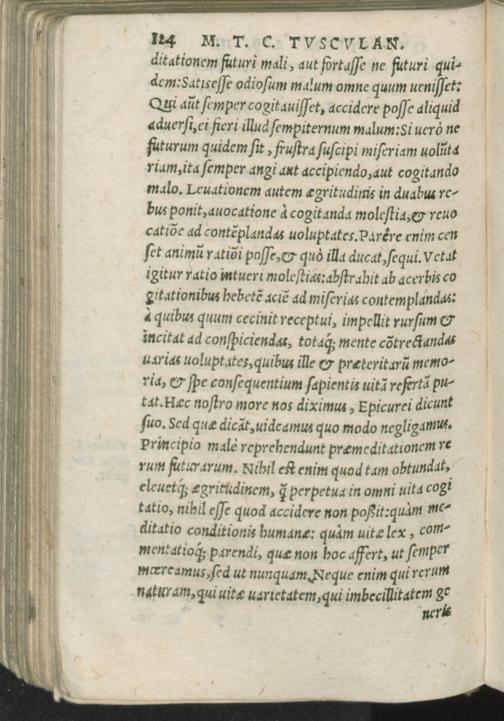 124 M. T. C. TVSCVLAN.
ditationem futuri mali, aut fortasse ne futuri qui-
dem: Satis esse odiosum malum omne quum uenisset:
Qui aūt semper cogitauisset, accidere posse aliquid
aduersi, ei fieri illud sempiternum malum: Si uerò ne
futurum quidem sit, frustra suscipi miseriam volūta
riam, ita semper angi aut accipiendo, aut cogitando
malo. Leuationem autem ægritudinis in duabus re-
bus ponit, auocatione à cogitanda molestia, & reuo
catiōe ad contēplandas uoluptates. Parêre enim cen
set animū ratiōi posse, & quò illa ducat, sequi. Vetat
igitur ratio intueri molestias: abstrahit ab acerbis co
gitationibus hebetē aciē ad miserias contemplandas:
à quibus quum cecinit receptui, impellit rursum &
incitat ad conspiciendas, totaq́; mente cōtrectandas
uarias uoluptates, quibus ille & præteritarū memo-
ria, & spe consequentium sapientis uitā refertā pu-
tat. Hæc nostro more nos diximus, Epicurei dicunt
suo. Sed quæ dicāt, uideamus quo modo negligamus.
Principio malè reprehendunt præmeditationem re
rum futurarum. Nihil est enim quod tam obtundat,
eleuetq́; ægritudinem, q̄̃ perpetua in omni uita cogi
tatio, nihil esse quod accidere non poßit: quàm me-
ditatio conditionis humanæ: quàm uitæ lex, com-
mentatioq́; parendi, quæ non hoc affert, ut semper
mœreamus, sed ut nunquam. Neque enim qui rerum
naturam, qui uitæ uarietatem, qui imbecillitatem ge
neris